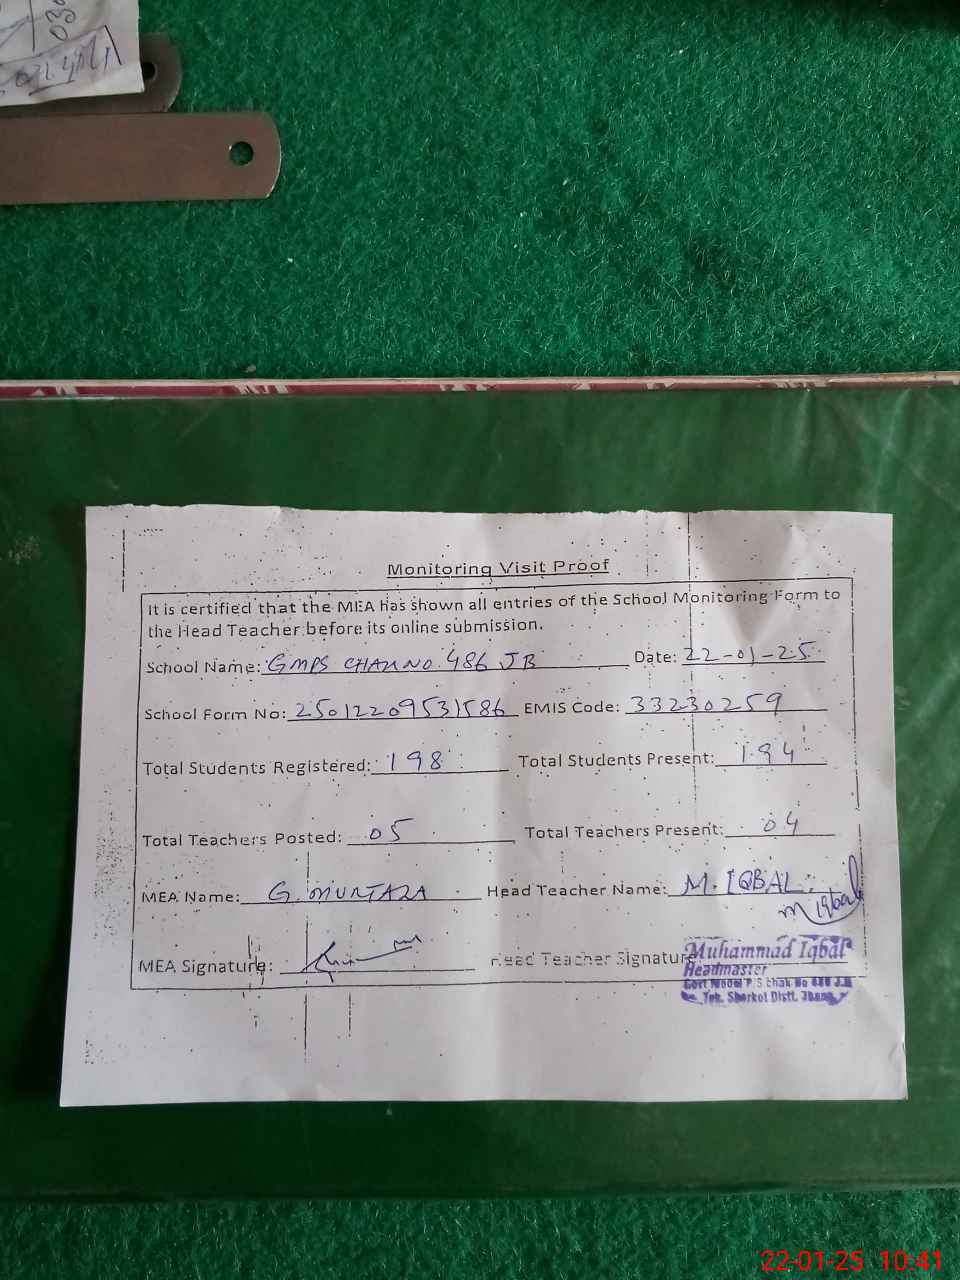 Monitoring Visit Proof
It is certified that the MEA has shown all entries of the School Monitoring Form to
the Head Teacher before its online submission.
School Name: GMPS CHAK NO. 486 JB Date: 22-01-25
School Form No: 25012209531586 EMIS Code: 33230259
Total Students Registered: 198 Total Students Present: 194
Total Teachers Posted: 05 Total Teachers Present: 04
MEA Name: G. MURTAZA Head Teacher Name: M. IQBAL
M Iqbal
MEA Signature: Head Teacher Signature
Muhammad Iqbal
Headmaster
Govt Model P.S Chak No 486 J.B
Teh. Shorkot Distt. Jhang
22-01-25 10:41